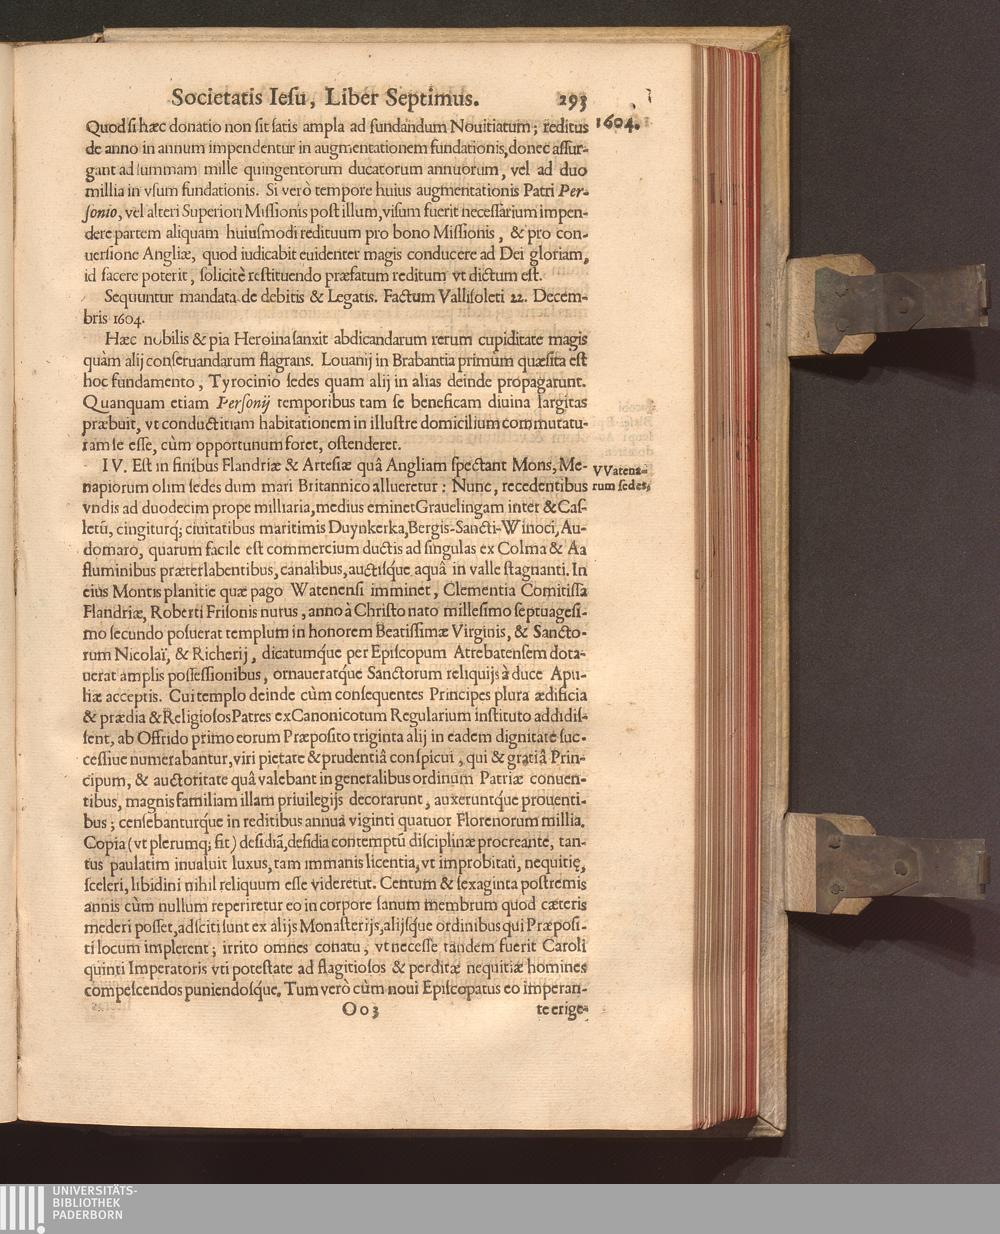 Societatis Iesu, Liber Septimus. 293
1604.
Quod si hæc donatio non sit satis ampla ad fundandum Nouitiatum; reditus
de anno in annum impendentur in augmentationem fundationis, donec assur-
gant ad summam mille quingentorum ducatorum annuorum, vel ad duo
millia in vsum fundationis. Si verò tempore huius augmentationis Patri Per-
sonio, vel alteri Superiori Missionis post illum, visum fuerit necessarium impen-
dere partem aliquam huiusmodi redituum pro bono Missionis, & pro con-
uersione Angliæ, quod iudicabit euidenter magis conducere ad Dei gloriam,
id facere poterit, solicitè restituendo præfatum reditum vt dictum est.
Sequuntur mandata de debitis & Legatis. Factum Vallisoleti 22. Decem-
bris 1604.
Hæc nobilis & pia Heroina sanxit abdicandarum rerum cupiditate magis
quàm alij conseruandarum flagrans. Louanij in Brabantia primùm quæsita est
hoc fundamento, Tyrocinio sedes quam alij in alias deinde propagarunt.
Quanquam etiam Personij temporibus tam se beneficam diuina largitas
præbuit, vt conductitiam habitationem in illustre domicilium commutatu-
ram se esse, cùm opportunum foret, ostenderet.
IV. Est in finibus Flandriæ & Artesiæ quâ Angliam spectant Mons, Me-
VVatena-
napiorum olim sedes dum mari Britannico allueretur: Nunc, recedentibus
rum sedes,
vndis ad duodecim prope milliaria, medius eminet Grauelingam inter & Cas-
letũ, cingiturq; ciuitatibus maritimis Duynkerka, Bergis-Sancti-Winoci, Au-
domaro, quarum facile est commercium ductis ad singulas ex Colma & Aa
fluminibus præterlabentibus, canalibus, auctisque aquâ in valle stagnanti. In
eius Montis planitie quæ pago Watenensi imminet, Clementia Comitissa
Flandriæ, Roberti Frisonis nurus, anno à Christo nato millesimo septuagesi-
mo secundo posuerat templum in honorem Beatissimæ Virginis, & Sancto-
rum Nicolaï, & Richerij, dicatumque per Episcopum Atrebatensem dota-
uerat amplis possessionibus, ornaueratque Sanctorum reliquijs à duce Apu-
liæ acceptis. Cui templo deinde cùm consequentes Principes plura ædificia
& prædia & Religiosos Patres ex Canonicorum Regularium instituto addidis-
sent, ab Offrido primo eorum Præposito triginta alij in eadem dignitate suc-
cessiue numerabantur, viri pietate & prudentiâ conspicui, qui & gratiâ Prin-
cipum, & auctoritate quâ valebant in generalibus ordinum Patriæ conuen-
tibus, magnis familiam illam priuilegijs decorarunt, auxeruntque prouenti-
bus; censebanturque in reditibus annua viginti quatuor Florenorum millia.
Copia (vt plerumq; fit) desidiã, desidia contemptũ disciplinæ procreante, tan-
tus paulatim inualuit luxus, tam immanis licentia, vt improbitati, nequitię,
sceleri, libidini nihil reliquum esse videretur. Centum & sexaginta postremis
annis cùm nullum reperiretur eo in corpore sanum membrum quod cæteris
mederi posset, adsciti sunt ex alijs Monasterijs, alijsque ordinibus qui Præposi-
ti locum implerent; irrito omnes conatu, vt necesse tandem fuerit Caroli
quinti Imperatoris vti potestate ad flagitiosos & perditæ nequitiæ homines
compescendos puniendosque. Tum verò cùm noui Episcopatus eo imperan-
Oo3 te erige-
UNIVERSITÄTS-
BIBLIOTHEK
PADERBORN